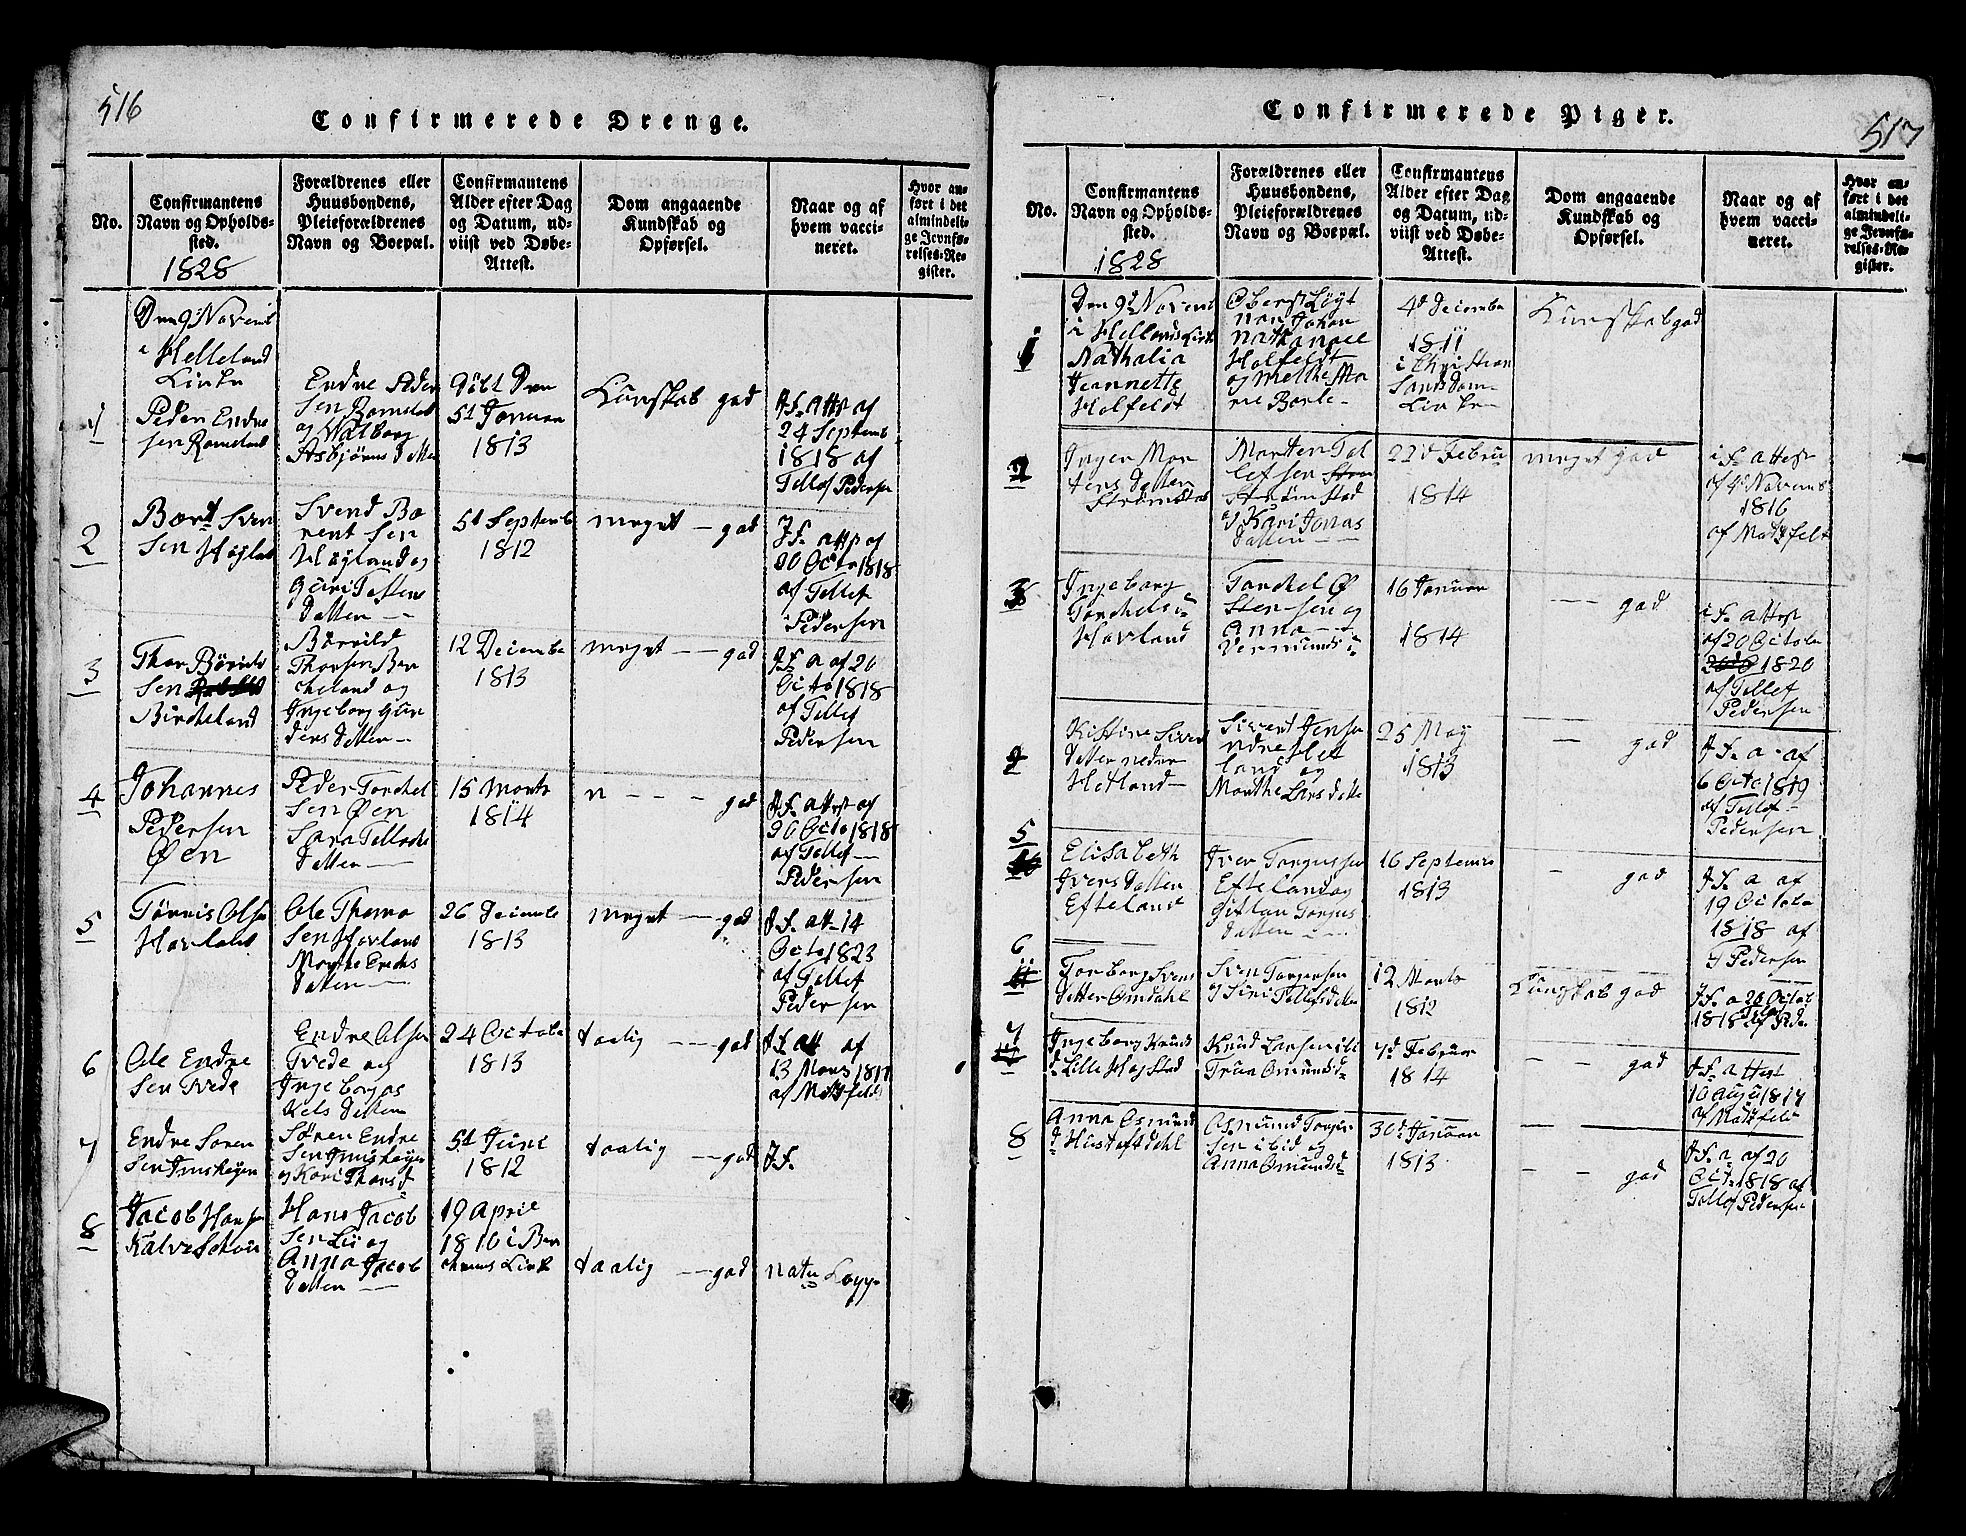 516
Confirmerede Drenge.
No.
Confirmantens
Navn og Opholds-
sted.
1828
Forældrenes eller
Huusbondens,
Pleieforældrenes
Navn og Boepæl.
Confirmantens
Alder efter Dag
og Datum, ud-
viist ved Døbe-
Attest.
Dom angaaende
Kundskab og
Opførsel.
Naar og af
hvem vacci-
neret.
Hvor an-
ført i det
almindeli-
ge Jevnfø-
relses-Re-
gister.
Den 9d Novemb
i Helleland
Kirke
1
Peder Endre
sen Rameland
Endre Peder
Sen Rameland
og Walborg
Asbjørns Datter
Døbt Den
5d Januar
1813
Kunskab god
J.S. atts af
24 Septemb
1818 af
Tellef Pedersen
2
Bærnt Sven
Sen Høgland
Svend Bæ
rent Sen
Høgland og
Guri
Datter
5d Septemb
1812
meget - god
J.S. atts af
20 Octo 1818
af Tellef
Pedersen
3
Thor Børvild
Sen
Bircheland
Børvild
Thorsen Ber
cheland og
Ingeborg Gun
ders Datter
12 Decembe
1813
meget - - god
J.S. a af 20
Octo 1818
af Tellef
Pedersen
4
Johannes
Pedersen
Øen
Peder Torchel
Sen Øen
Sara
Datter
15 Marts
1814
n - - - god
J.S. attst af
20 Octo 1818
af Tellef
Pedersen
5
Tønnis Olsen
Havland
Ole Thoma
Sen Havland
Marthe Erichs
Datter
26 Decembe
1813
meget - god
J.S. att 14
Octo 1823
af Tellef
Pedersen
6
Ole Endre
Sen Tvede
Endre Olsen
Tvede og
Ingeborg As
Kels Datter
24 Octobe
1813
taalig - - god
J.S. att af
13 Mars 1817
af Matfeldt
7
Endre Søren
Sen
Søren Endre
Sen
og Kari Thors d
5d Juni
1812
taalig - god
J.S.
8
Jacob Hansen
Hans Jacob
Sen Lii og
Anna Jacob
Datter
19 April
1810 i Ber
Kirk
taalig - god
natu Kopp
517
Confirmerede Piger.
No.
Confirmantens
Navn og Opholds-
sted.
1828
Forældrenes eller
Huusbondens,
Pleieforældrenes
Navn og Boepæl.
Confirmantens
Alder efter Dag
og Datum, ud-
viist ved Døbe-
Attest.
Dom angaaende
Kundskab og
Opførsel.
Naar og af
hvem vacci-
neret.
Hvor an-
ført i det
almindeli-
ge Jevnfø-
relses-Re-
gister.
1
Den 9d Novemb
i Hellelands Kirke
Nathalia
Jeannette
Holfeldt
Oberst Løyt
nan Johan
Nathanael
Holfeldt
og Melthe Ma
rie Barle
4d Decembe
1811
i Christian
Sands Dom
Kirke
Kunskab god
2
Inger Mor
tens Datter
Strømstad
Morten Tol
lefsen
Strømstad
og Kari Jonas
Datter
22d Febru
1814
meget god
i S. attest
af 4d Novemb
1816
af Matsfelt
3
Ingeborg
Torchels d
Havland
Torchel Ø
Stensen og
Anna
16 Januar
1814
- - god
i S. attest
af 20 Octobe
1820
af Tellef
Pedersen
Kistine Siver
Datter nedre
Hetland
Sivert Jensen
nedre Het
land og
Marthe Lars datte
25 May
1813
- god
J.S. a af
6 Octo 1819
af Tellef
Pedersen
5
Elisabeth
Ivers Datter
Efteland
Iver Torgussen
Efteland og
Torgus
Datter
16 Septemb
1813
- god
J.S. a af
19 Octobe
1818 af
T Pedersen
6
Torborg Svens
Datter Omdahl
Sven Torgersen
og Siri Tellefs datter
12 Marts
1812
Kunskab god
J.S. a 20 Octob
1818 af Pede
7
Ingeborg Knuds
d. Lille Hafstad
Knud Larsen ibi
Trua Omunds d
7d Februar
1814
- - god
J.S. attest
10 Augu 1817
af Matfeld
8
Anna Osmund
d Hustoftdahl
Osmund Torger
Sen ibid og
Anna Omunds d
30d Januar
1813
- - god
J.S. a af 20
Oct. 1818 af
Tellef Pedersen